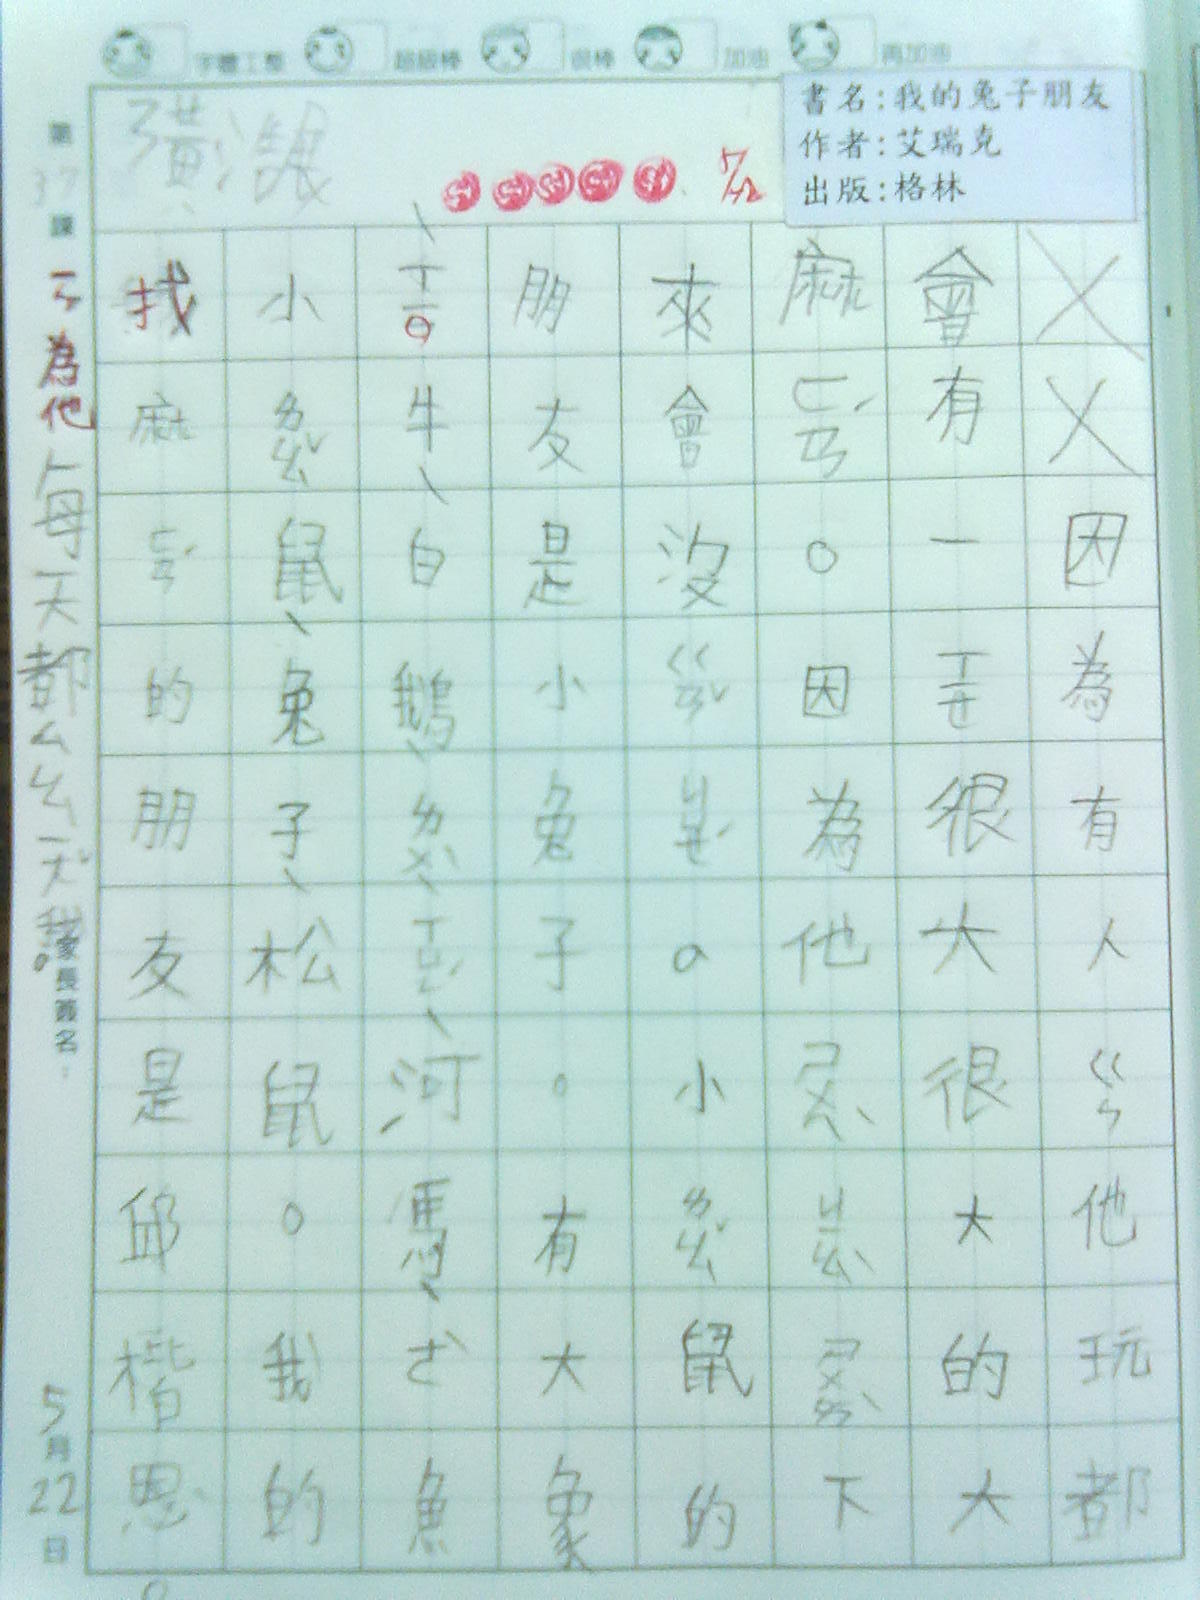 字體工整 超級棒 很棒 加油 再加油
書名:我的兔子朋友
作者:艾瑞克
出版:格林
第37課
ㄨㄨ因為有人ㄍㄣ他玩都
會有一ㄒㄧㄝ很大很大的大
麻ㄈㄢˊ。因為他ㄕㄨㄟˋㄐㄧㄠˋㄕㄨㄟˋ下
來會沒ㄍㄢˇㄐㄩㄝˊ。小ㄌㄠˇ鼠的
朋友是小兔子。有大象
牛、白鵝、ㄒㄩㄥˊ、河馬、ㄜˋ魚
小ㄌㄠˇ鼠、兔子、松鼠。我的
找麻ㄈㄢˊ的朋友是邱楷恩。
因為他每天都ㄙㄠ一ㄤˇ我。
家長簽名:
5月22日